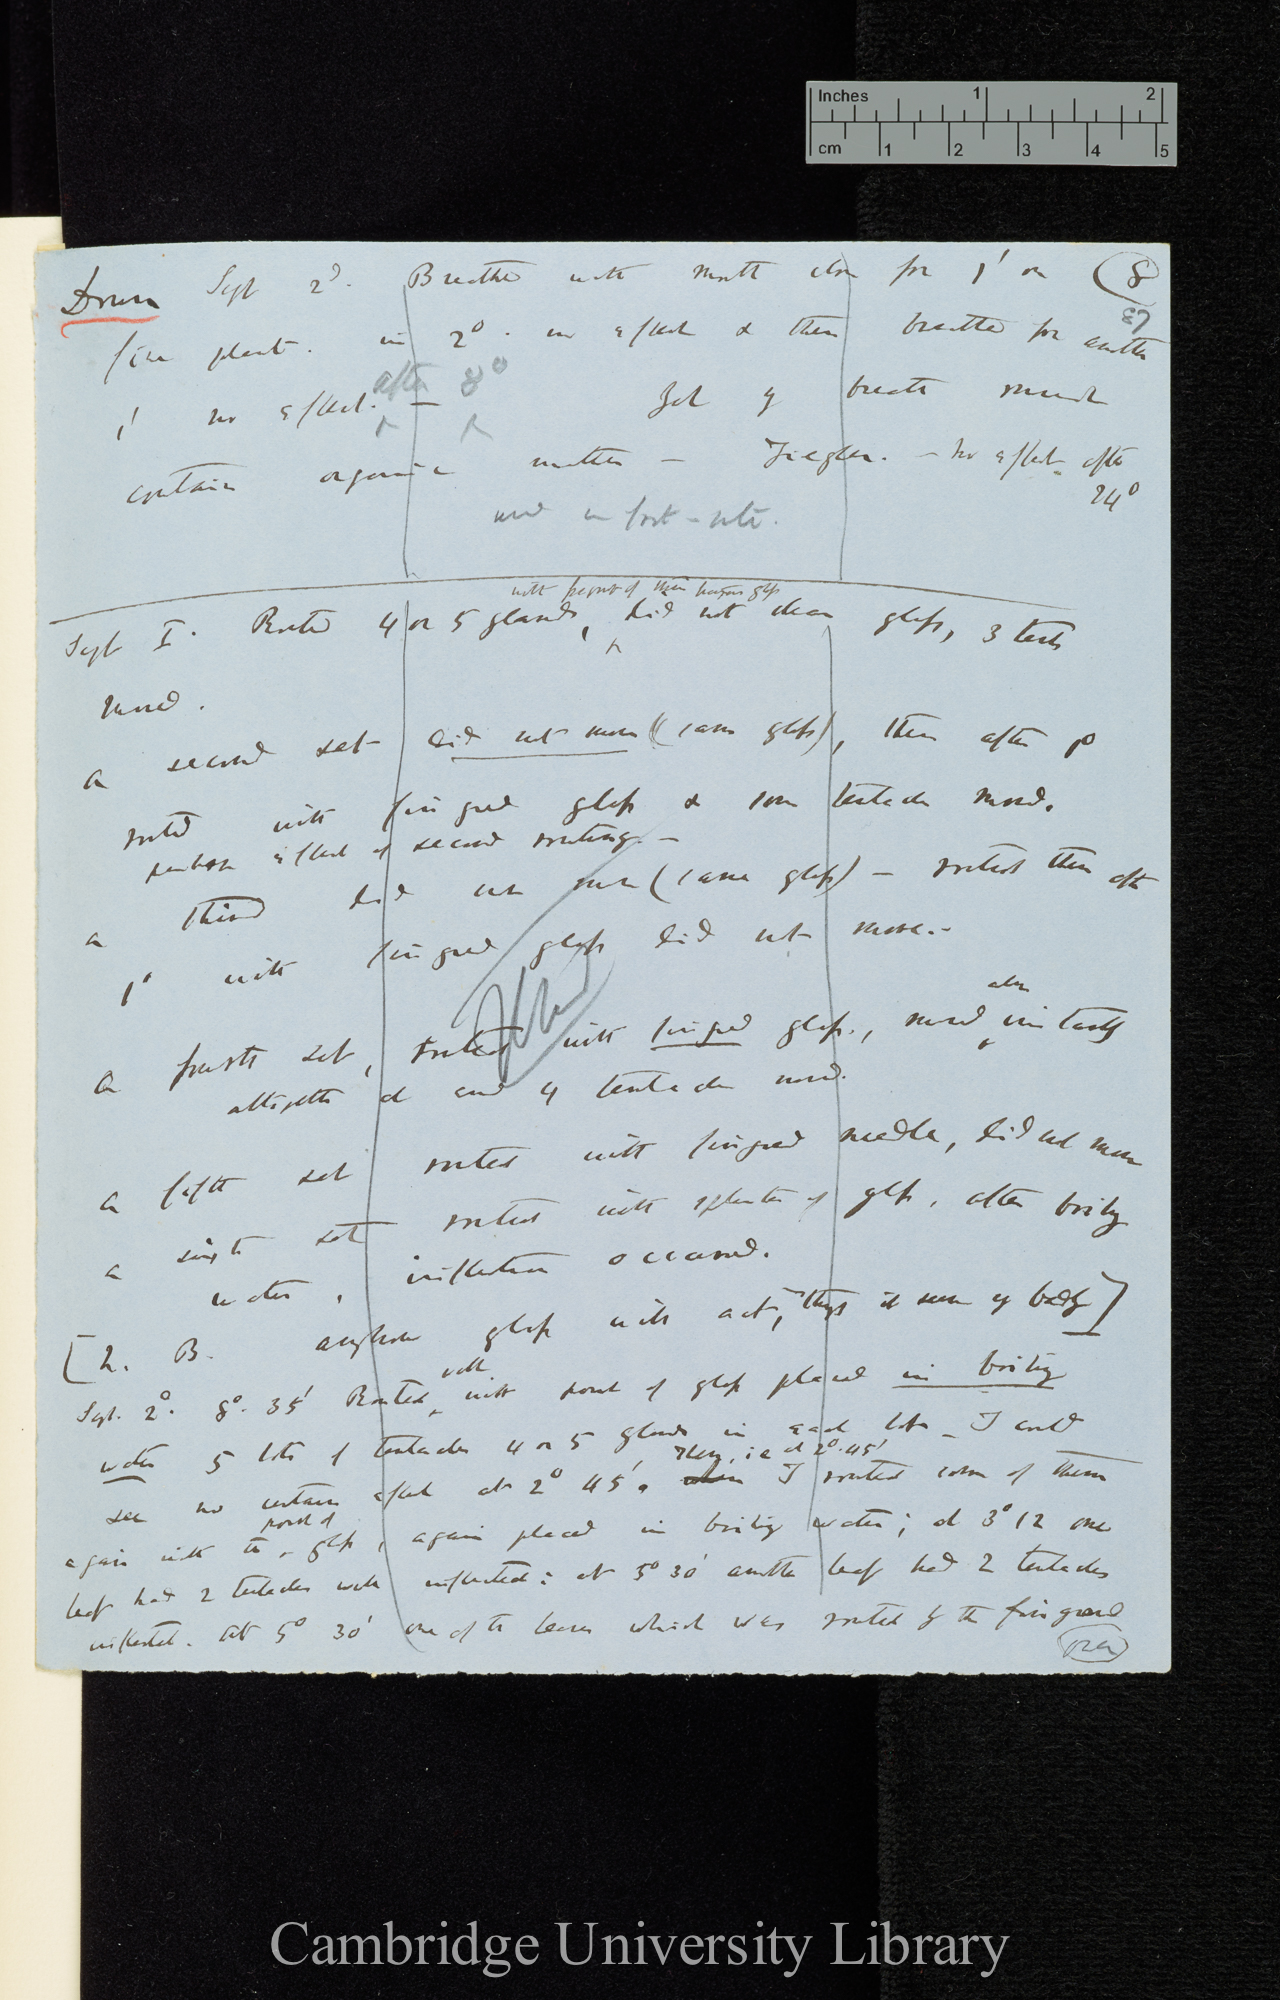 Inches 1 2
cm 1 2 3 4 5
Down Sept 2d. Breathed with mouth close for 1' on (8
67
fine plant. in 2°. no effect & then breathed for another
1' no effect. after 8° — Yet my breath must
contain organic matter — Ziegler. — no effect after
24°
used in foot-note.
with point of thin glass
Sept 1. Rubbed 4 or 5 glands, did not clean glass, 3 tents
moved.
a second set did not move (same glass), then after 1°
rubbed with fingered glass & some tentacles moved.
perhaps effect of second rubbing —
a third did not move (same glass) — rubbed then after
1° with fingered glass did not move. —
a fourth set, rubbed with fingered glass, moved
altogether and 4 tentacles moved.
a fifth set rubbed with fingered needle, did not move
a sixth set rubbed with splinter of glass, after boiling
water, inflection occurred.
[N. B. anyhow glass will act, ]
Sept. 2d. 8°. 35' Rubbed well with point of glass placed in boiling
water 5 lots of tentacles 4 or 5 glands in each lot — I could
Then, i.e at 2° 45'
see no certain effect at 2° 45'. I rubbed some of them
again with the point of glass, again placed in boiling water; at 3° 12 one
leaf had 2 tentacles well inflected: at 5° 30' another leaf had 2 tentacles
inflected. At 5° 30' one of the leaves which was rubbed by the fingered
Cambridge University Library